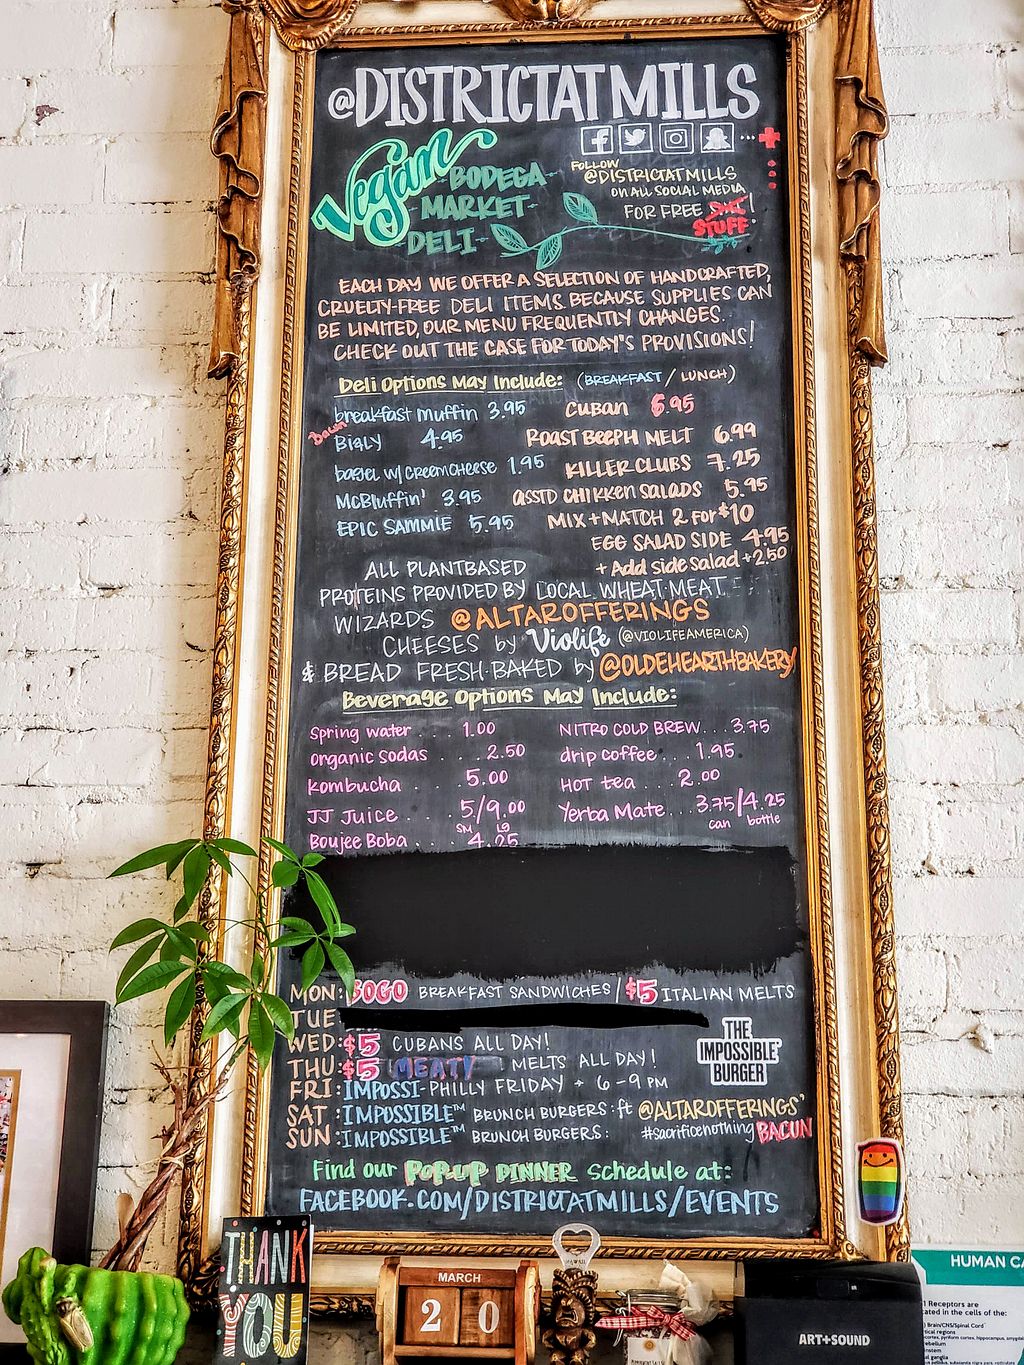 @DISTRICTATMILLS
Vegan
BODEGA
MARKET
DELI
FOLLOW
@DISTRICTATMILLS
ON ALL SOCIAL MEDIA
FOR FREE !
STUFF
EACH DAY WE OFFER A SELECTION OF HANDCRAFTED,
CRUELTY-FREE DELI ITEMS. BECAUSE SUPPLIES CAN
BE LIMITED, OUR MENU FREQUENTLY CHANGES.
CHECK OUT THE CASE FOR TODAY'S PROVISIONS!
Deli Options May Include: (BREAKFAST / LUNCH)
breakfast muffin 3.95
Bacun
BIGLY 4.95
bagel w/ creemcheese 1.95
McBluffin' 3.95
EPIC SAMMIE 5.95
CUBAN 6.95
ROAST BEEPH MELT 6.99
KILLER CLUBS 7.25
ASSTD CHIKKEN SALADS 5.95
MIX + MATCH 2 FOR $10
EGG SALAD SIDE 4.95
+ Add side salad +2.50
ALL PLANTBASED
PROTEINS PROVIDED BY LOCAL WHEAT-MEAT
WIZARDS @ALTAROFFERINGS
CHEESES by Violife (@VIOLIFEAMERICA)
& BREAD FRESH-BAKED by @OLDEHEARTHBAKERY
Beverage Options May Include:
Spring water . . . 1.00
organic sodas . . . 2.50
kombucha . . . 5.00
JJ Juice . . . 5/9.00
SM LG
Boujee Boba . . . 4.25
NITRO COLD BREW... 3.75
drip coffee... 1.95
HOT tea ... 2.00
Yerba Mate... 3.75/4.25
can bottle
MON: BOGO BREAKFAST SANDWICHES / $5 ITALIAN MELTS
TUE
WED: $5 CUBANS ALL DAY!
THU: $5 MEATY MELTS ALL DAY!
FRI: IMPOSSI-PHILLY FRIDAY + 6-9PM
SAT: IMPOSSIBLE™ BRUNCH BURGERS: ft @ALTAROFFERINGS'
SUN: IMPOSSIBLE™ BRUNCH BURGERS: #sacrificenothing BACUN
THE
IMPOSSIBLE
BURGER
Find our POPUP DINNER schedule at:
FACEBOOK.COM/DISTRICTATMILLS/EVENTS
THANK
YOU
MARCH
20
ART+SOUND
HUMAN CA
1 Receptors are
cated in the cells of the:
Brain/CNS/Spinal Cord
tical regions
ebellum
al ganglia